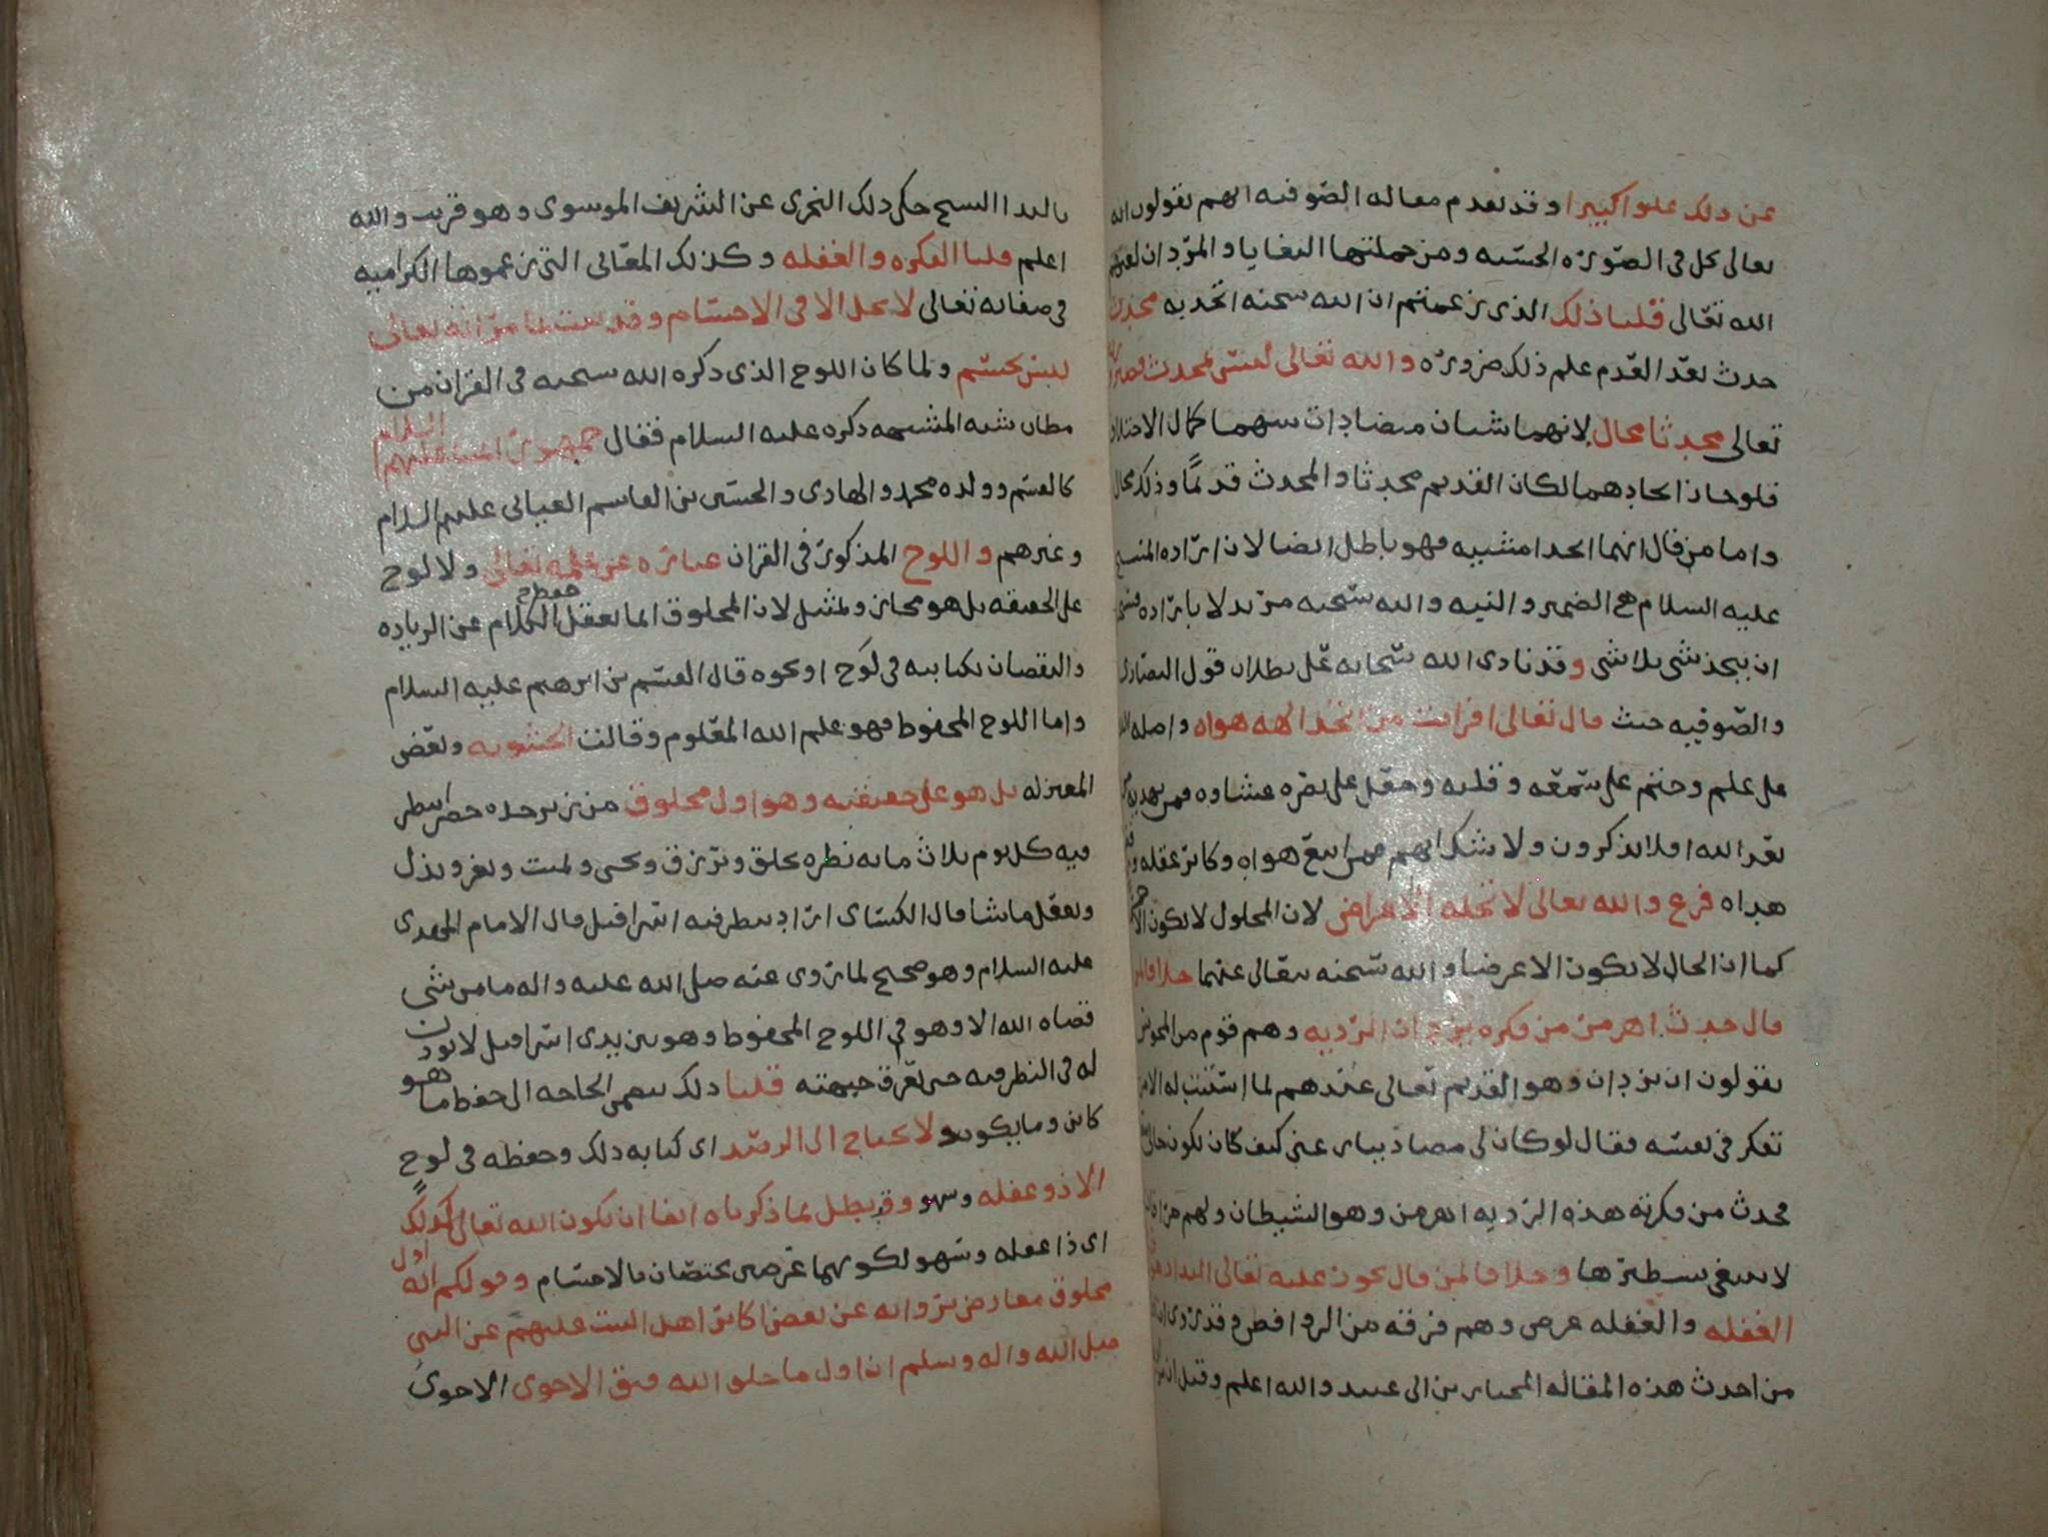 عن ذلك علوا كبيرا وقد تقدم مقاله الصوفيه انهم يقولون الله
تعالى يحل في الصوره الحسنه ومن جملتها البغايا والمردان لعنهم
الله تعالى قلنا ذلك الذي زعمتم ان الله سبحنه اتحد به محدث
حدث بعد العدم علم ذلك ضروره والله تعالى ليس بمحدث
تعالى محدثا محال لانهما شيان متضادان بينهما كمال الاختلاف
فلو جاز اتحادهما لكان القديم محدثا والمحدث قديما وذلك محال
واما من قال انهما اتحدا مشييه فهو باطل ايضا لان اراده المسيح
عليه السلام هي الضمير والنيه والله سبحنه مريد لا باراده
ان يتحد شي بلا شي وقد نادى الله سبحانه على بطلان قول النصارى
والصوفيه حيث قال تعالى افرايت من اتخذ الهه هواه واضله الله
على علم وختم على سمعه وقلبه وجعل على بصره غشاوه فمن يهديه
بعد الله افلا تذكرون ولا شك انهم ممن اتبع هواه وكابر عقله
هداه فرع والله تعالى لا تحله الاعراض لان المحلول لا يكون
كما ان الحال لا يكون الا عرضا والله سبحنه يتعالى عنهما خلافا لمن
قال حدث اهرمن من فكره يزدان الرديه وهم قوم من المجوس
يقولون ان يزدان وهو القديم تعالى عندهم لما استتب له الامر
تفكر في نفسه فقال لو كان لي مضاد ينازعني كيف كان يكون حالي
محدث من فكرته هذه الرديه اهرمن وهو الشيطان ولهم
لا ينبغي تسطيرها وخلافا لمن قال يجوز عليه تعالى البدا
الغفله والغفله عرض وهم فرقه من الروافض وقد روي ان
من احدث هذه المقاله المختار بن ابي عبيد والله اعلم وقيل ان
بالبدا النسخ حكى ذلك النجري عن الشريف الموسوي وهو قريب والله
اعلم قلنا الفكره والغفله وكذلك المعاني التي زعموها الكراميه
في صفاته تعالى لا يحل الا في الاجسام وقد ثبت بما مر انه تعالى
ليس بجسم ولما كان اللوح الذي ذكره الله سبحنه في القران من
مظان شبه المشبهه ذكره عليه السلام فقال جمهور ائمتنا عليهم السلام
كالقسم وولده محمد والهادي والحسين بن القاسم العياني عليهم السلام
وغيرهم واللوح المذكور في القران عباره عن علمه تعالى ولا لوح
على الحقيقه بل هو مجاز وتمثيل لان المخلوق انما يعقل حفظ الكلام عن الزياده
والنقصان بكتابه في لوح او نحوه قال القسم بن ابرهيم عليه السلام
واما اللوح المحفوظ فهو علم الله المعلوم وقالت الحشويه وبعض
المعتزله بل هو على حقيقته وهو اول مخلوق من زبرجده خضرا ينظر
فيه كل يوم ثلاث مايه نظره يخلق ويرزق ويحيي ويميت ويعز ويذل
ويفعل ما يشا قال الكسائي اراد ينظر فيه اسرافيل قال الامام المهدي
عليه السلام وهو صحيح لما روي عنه صلى الله عليه واله ما من شي
قضاه الله الا وهو في اللوح المحفوظ وهو بين يدي اسرافيل لا يوذن
له في النظر فيه حتى يعرق جبهته قلنا ذلك يقتضي الحاجه الى حفظ ما هو
كاين وما يكون ولا يحتاج الى الرصد اي كتابه ذلك وحفظه في لوح
الا ذو غفله وسهو وقد بطل بما ذكرناه انفا ان يكون الله تعالى كذلك
اي ذا غفله وسهو لكونهما عرضين يختصان بالاجسام وقولكم انه اول
مخلوق معارض بروايه عن بعض اكابر اهل البيت عليهم عن النبي
صلى الله واله وسلم ان اول ما خلق الله فتق الاجوى الاجوى